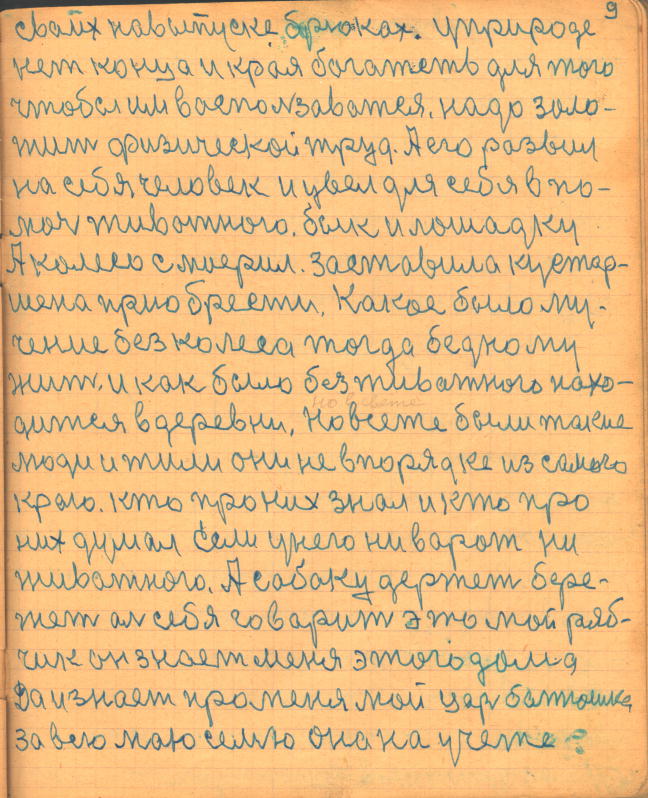 9
свайх навыпуске брюках. уприроде
нет конца и края багатств для того
чтобы им васползаватся. надо зало-
жит физической труд. А его развил
на себя человек и увел для себя в по-
моч животного. бык и лошадку
А колесо смоерил. заставила кустар-
шена приобрести. Какое было му-
чение без колеса тогда бедному
жит, и как было без живатного нахо-
дится в деревни, Новсете были такие
на свете
люди и жили они не впорядке из самого
краю. кто проних знал и кто про
них думал Если унего ниварот ни
животного. А сабаку держет бере-
жет ал себя говарит это мой ряб-
чик он знает меня этого дома
Да и знает променя мой цар батюшка
за всю маю семю она на учете